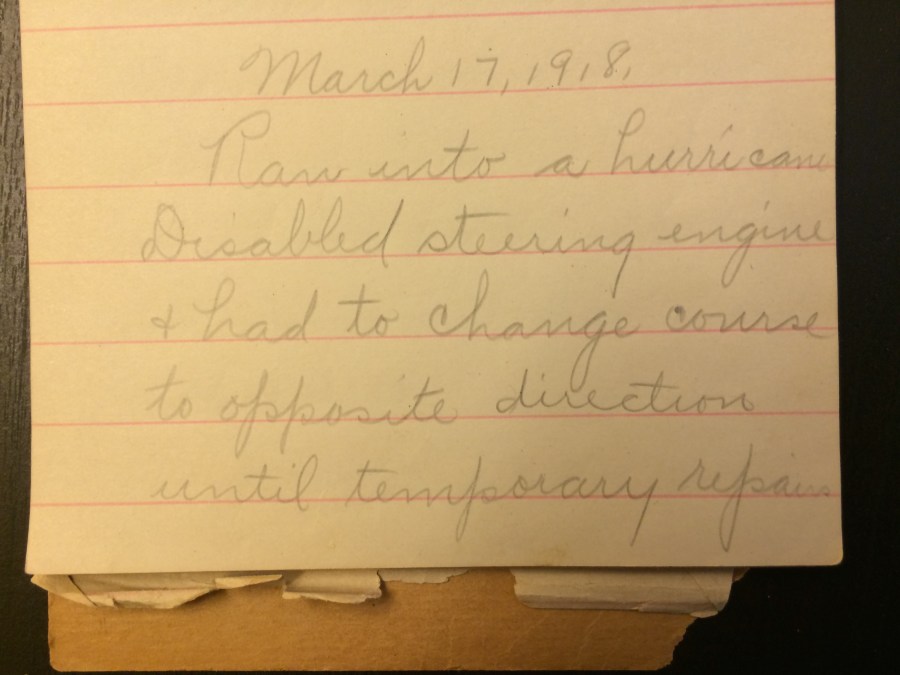 March 17, 1918.
Ran into a hurricane
Disabled steering engine
& had to change course
to opposite direction
until temporary repairs